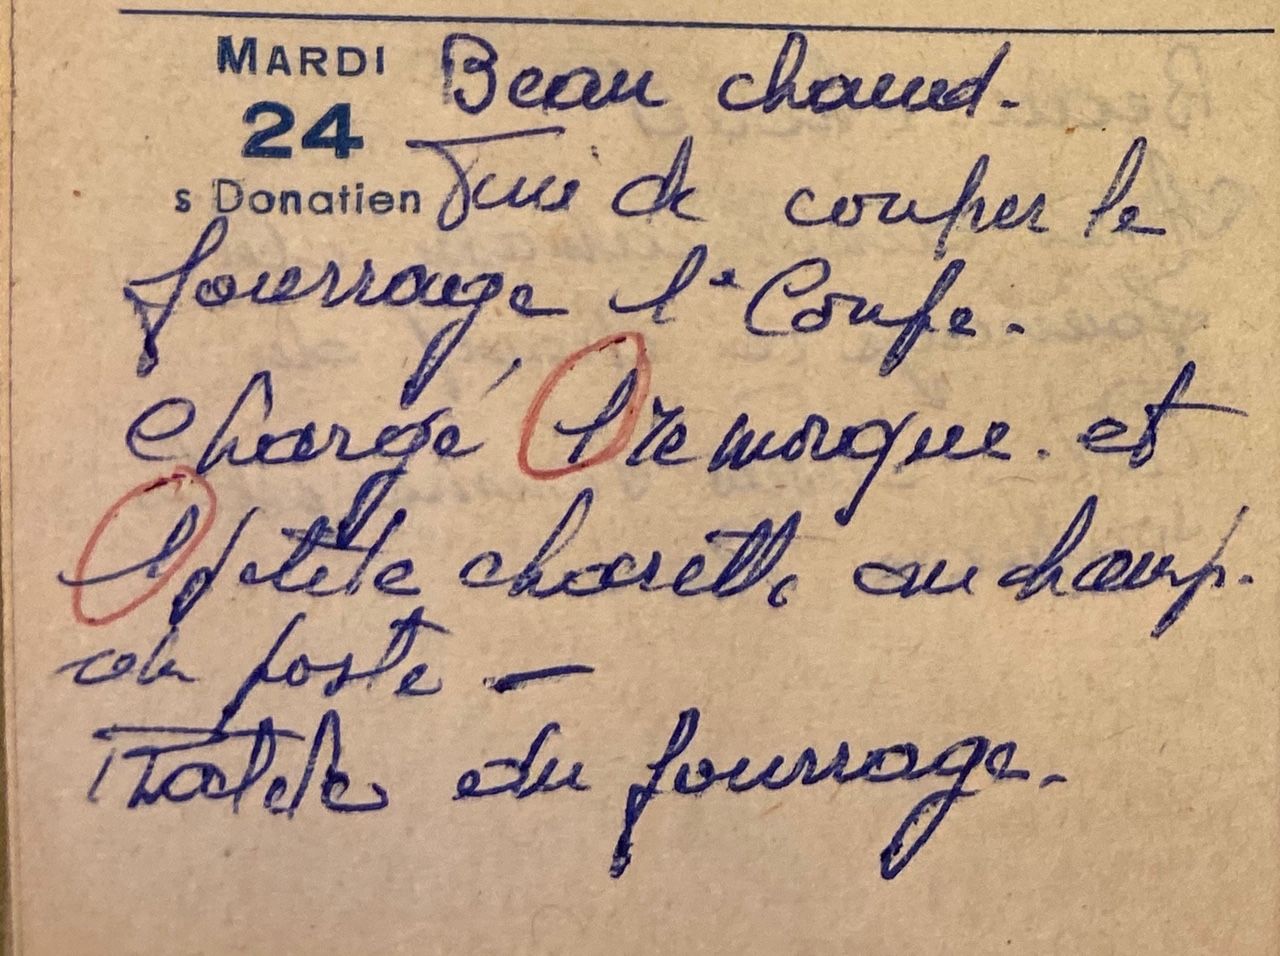 MARDI Beau chaud.
24
s Donatien Fini de couper le
fourrage 1e Coupe.
Chargé 1 remorque. et
1 petite charette au champ.
du poste —
du fourrage.